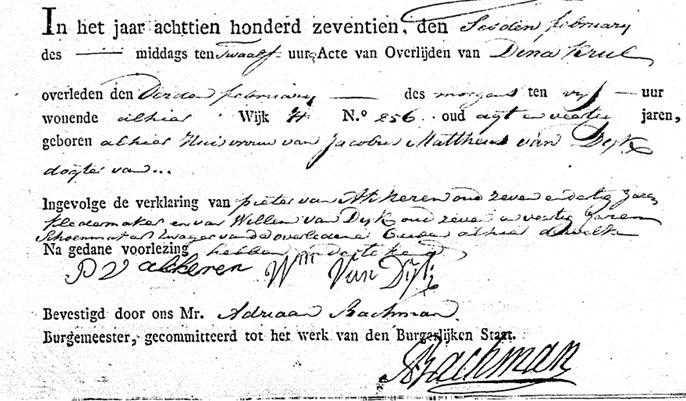 In het jaar achttien honderd zeventien, den Sesden february
des — middags ten Twaalf uur, Acte van Overlijden van Dena Krul
overleden den Derden february — des morgens ten vijf — uur
wonende alhier Wijk H N.o 256 oud agt en veertig jaren,
geboren alhier Huisvrouw van Jacobus Mattheus van Dijk
dogter van...
Ingevolge de verklaring van pieter van Akkeren oud zeven en dertig Jaren
kledemaker en van Willem van Dijk oud zeven en veertig Jaren
Schoenmaker Swager van de overledene beiden alhier dewelke
Na gedane voorlezing hebben getekend
P V akkeren Wm Van Dijk
Bevestigd door ons Mr. Adriaan Bachman.
Burgemeester, gecommitteerd tot het werk van den Burgerlijken Staat.
ABachman